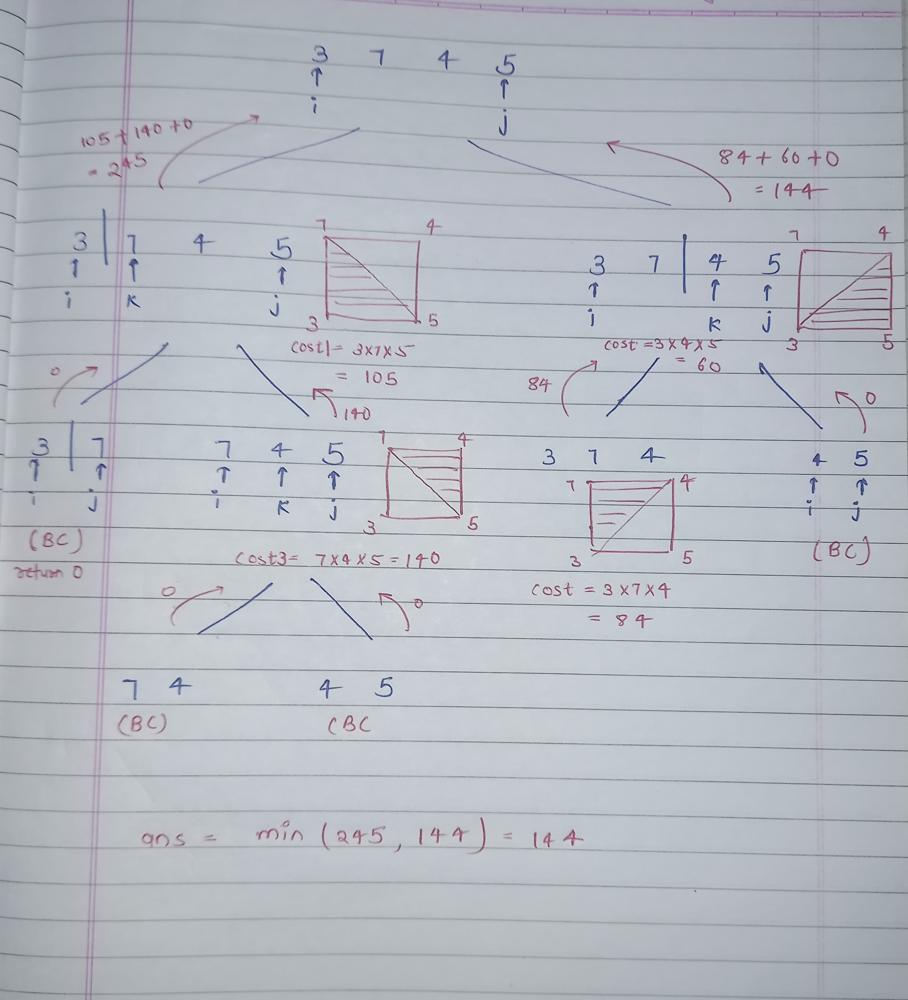 3 7 4 5
↑ ↑
i j
105+140+0
= 245
84+60+0
= 144
3 | 7 4 5
↑ ↑ ↑
i K j
7 4
3 5
cost1= 3x7x5
= 105
3 7 | 4 5
↑ ↑ ↑
i K j
7 4
3 5
cost =3x4x5
= 60
0
140
84
0
3 | 7
↑ ↑
i j
(BC)
return 0
7 4 5
↑ ↑ ↑
i K j
7 4
3 5
cost3= 7x4x5=140
3 7 4
7 4
3 5
cost = 3x7x4
= 84
4 5
↑ ↑
i j
(BC)
0
0
7 4
(BC)
4 5
(BC
ans = min (245, 144) = 144